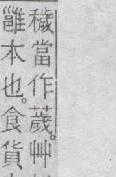 穢當作薉。艸
雝本也。食貨